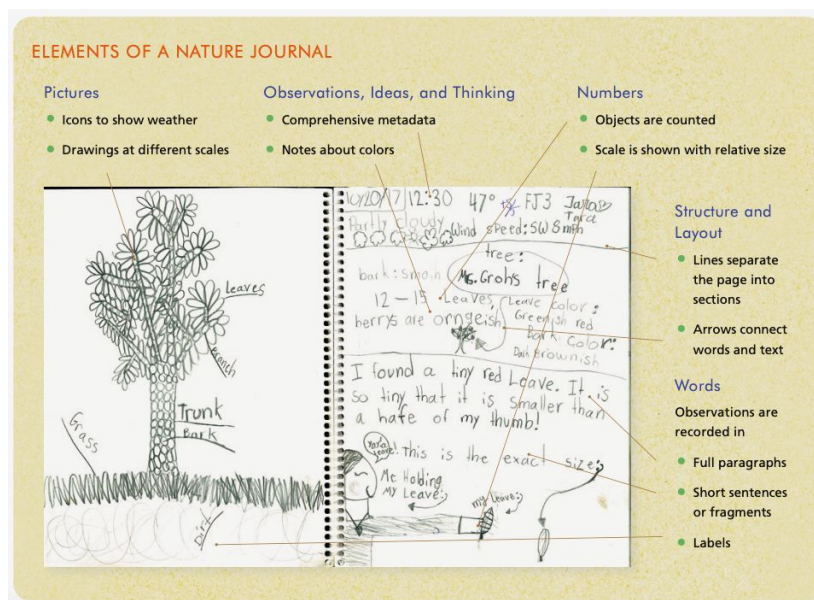 ELEMENTS OF A NATURE JOURNAL
Pictures
Icons to show weather
Drawings at different scales
Observations, Ideas, and Thinking
Comprehensive metadata
Notes about colors
Numbers
Objects are counted
Scale is shown with relative size
Structure and
Layout
Lines separate
the page into
sections
Arrows connect
words and text
Words
Observations are
recorded in
Full paragraphs
Short sentences
or fragments
Labels
Leaves
Trunk
Bark
Grass
Dirt
10/20/17 12:30 47° FJ3
Tara
Partly cloudy Wind speed: SW 8 mph
tree:
bark: smoth Ms. Groh's tree
12 – 15 Leaves
berrys are orngeish
Leave color:
Greenish red
Bark color:
Dark Brownish
I found a tiny red Leave. It is
so tiny that it is smaller than
a hafe of my thumb!
this is the exact size:
Me Holding
My Leave:
my Leave: